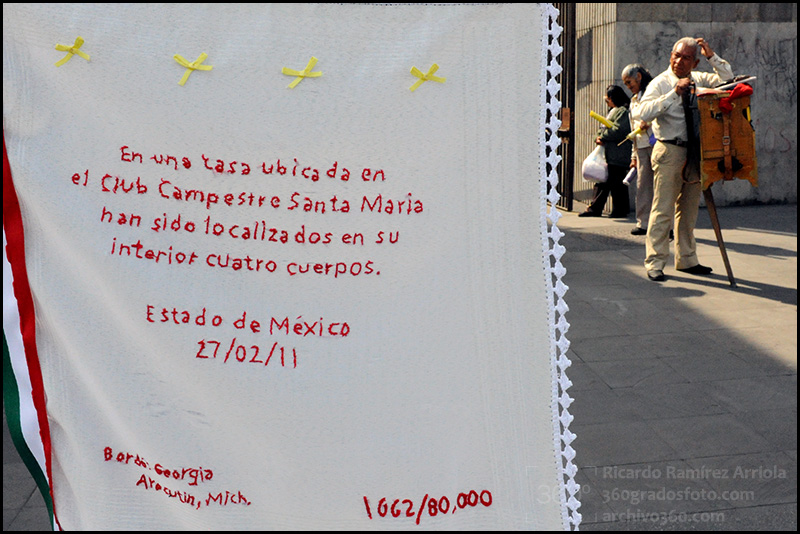 En una casa ubicada en
el Club Campestre Santa Maria
han sido localizados en su
interior cuatro cuerpos.
Estado de México
27/02/11
Bordó: Georgia
Aracutín, Mich.
1662/80,000
Ricardo Ramírez Arriola
360gradosfoto.com
archivo360.com